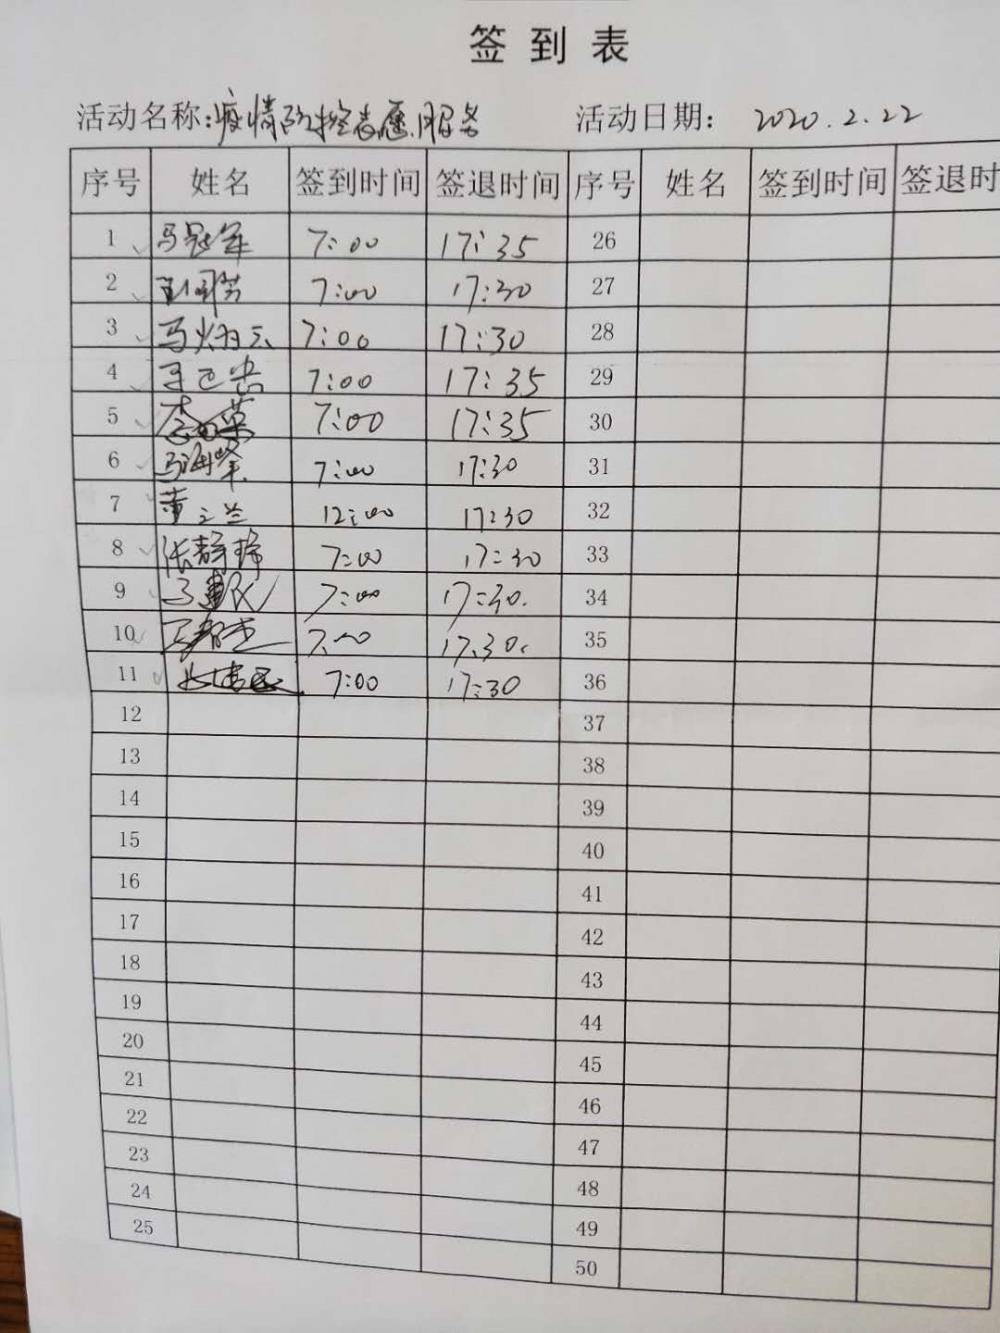 签到表
活动名称:疫情防控志愿服务 活动日期: 2020.2.22
序号 姓名 签到时间 签退时间 序号 姓名 签到时间 签退时
1 马冠军 7:00 17:35 26
2 7:00 17:30 27
3 马 云 7:00 17:30 28
4 7:00 17:35 29
5 李 英 7:00 17:35 30
6 马海峰 7:00 17:30 31
7 黄之兰 12:00 17:30 32
8 张静 7:00 17:30 33
9 马建 7:00 17:30. 34
10 7:00 17:30. 35
11 7:00 17:30 36
12 37
13 38
14 39
15 40
16 41
17 42
18 43
19 44
20 45
21 46
22 47
23 48
24 49
25 50